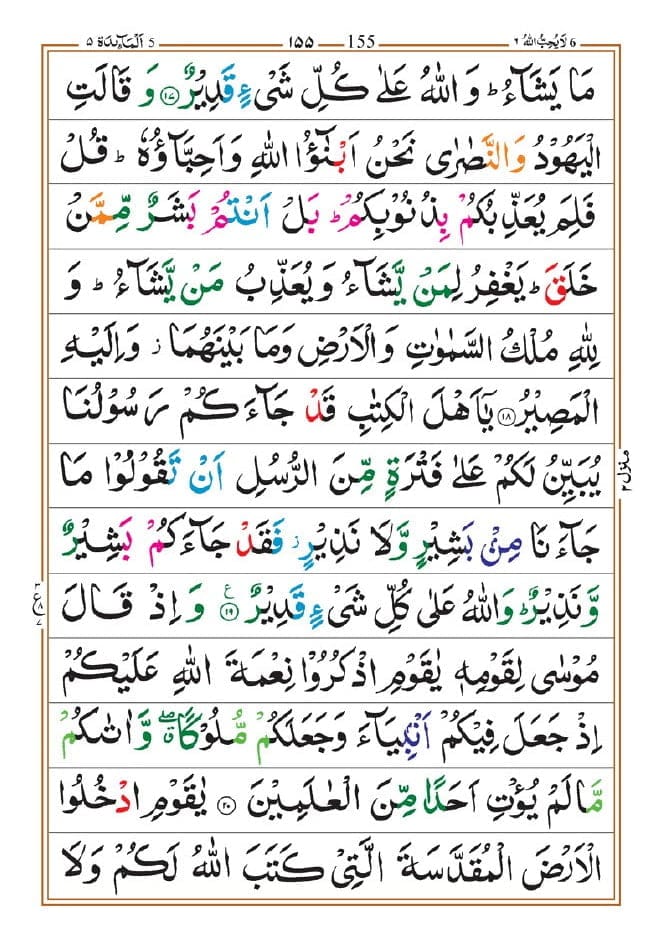 6 لَا يُحِبُّ اللّٰهُ ٦
155 ١٥٥
5 اَلْمَآئِدَة ٥
مَا يَشَآءُ ؕ وَ اللّٰهُ عَلٰى كُلِّ شَىْءٍ قَدِيْرٌ ‏﴿۱۷﴾‏ وَ قَالَتِ
الْيَهُوْدُ وَالنَّصٰرٰى نَحْنُ اَبْنٰٓؤُا اللّٰهِ وَاَحِبَّآؤُهٗ ؕ قُلْ
فَلِمَ يُعَذِّبُكُمْ بِذُنُوْبِكُمْ ؕ بَلْ اَنْتُمْ بَشَرٌ مِّمَّنْ
خَلَقَ ؕ يَغْفِرُ لِمَنْ يَّشَآءُ وَ يُعَذِّبُ مَنْ يَّشَآءُ ؕ وَ
لِلّٰهِ مُلْكُ السَّمٰوٰتِ وَالْاَرْضِ وَمَا بَيْنَهُمَا ز وَاِلَيْهِ
الْمَصِيْرُ ‏﴿۱۸﴾‏ يٰۤاَهْلَ الْكِتٰبِ قَدْ جَآءَكُمْ رَسُوْلُنَا
يُبَيِّنُ لَكُمْ عَلٰى فَتْرَةٍ مِّنَ الرُّسُلِ اَنْ تَقُوْلُوْا مَا
منزل ٢
جَآءَنَا مِنْۢ بَشِيْرٍ وَّلَا نَذِيْرٍ ز فَقَدْ جَآءَكُمْ بَشِيْرٌ
وَّنَذِيْرٌ ؕ وَاللّٰهُ عَلٰى كُلِّ شَىْءٍ قَدِيْرٌ ‏﴿۱۹﴾‏ ع وَ اِذْ قَالَ
ع ٨
مُوْسٰى لِقَوْمِهٖ يٰقَوْمِ اذْكُرُوْا نِعْمَةَ اللّٰهِ عَلَيْكُمْ
اِذْ جَعَلَ فِيْكُمْ اَنْۢبِيَآءَ وَجَعَلَكُمْ مُّلُوْكًا ۖ وَّاٰتٰٮكُمْ
مَّا لَمْ يُؤْتِ اَحَدًا مِّنَ الْعٰلَمِيْنَ ‏﴿۲۰﴾‏ يٰقَوْمِ ادْخُلُوا
الْاَرْضَ الْمُقَدَّسَةَ الَّتِىْ كَتَبَ اللّٰهُ لَكُمْ وَلَا